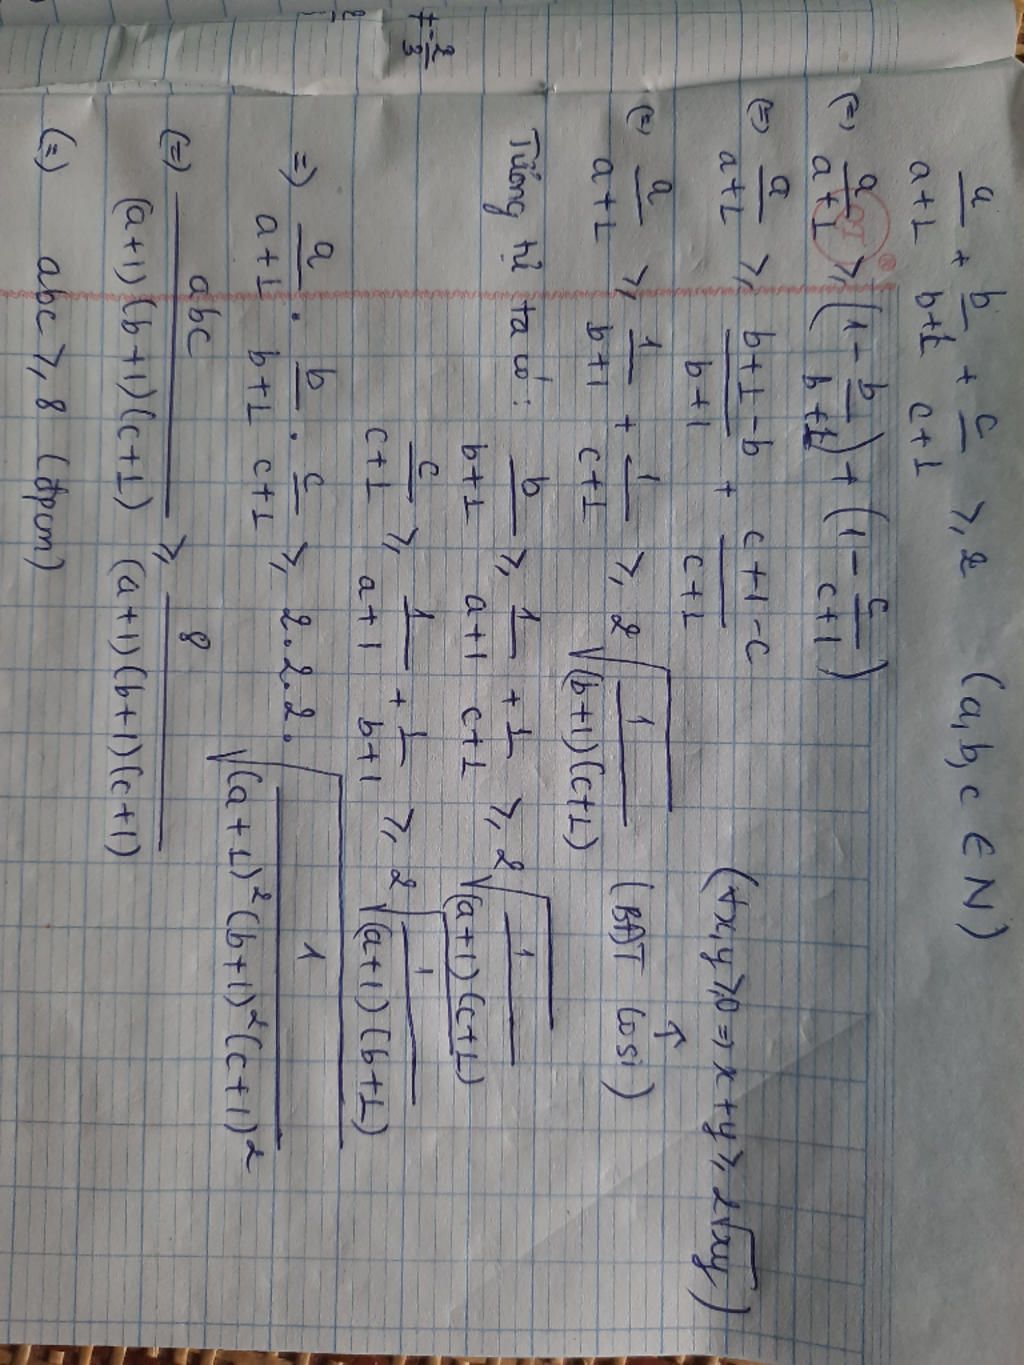 a/(a+1) + b/(b+1) + c/(c+1) ≥ 2 (a, b, c ∈ N)
(=) a/(a+1) ≥ (1 - b/(b+1)) + (1 - c/(c+1))
(=) a/(a+1) ≥ (b+1-b)/(b+1) + (c+1-c)/(c+1) (∀x,y ≥ 0 => x+y ≥ 2√(xy))
(=) a/(a+1) ≥ 1/(b+1) + 1/(c+1) ≥ 2√(1/((b+1)(c+1))) (BĐT Cosi)
Tương tự ta có: b/(b+1) ≥ 1/(a+1) + 1/(c+1) ≥ 2√(1/((a+1)(c+1)))
c/(c+1) ≥ 1/(a+1) + 1/(b+1) ≥ 2√(1/((a+1)(b+1)))
=) a/(a+1) . b/(b+1) . c/(c+1) ≥ 2.2.2.√(1/((a+1)²(b+1)²(c+1)²))
(=) abc/((a+1)(b+1)(c+1)) ≥ 8/((a+1)(b+1)(c+1))
(=) abc ≥ 8 (đpcm)